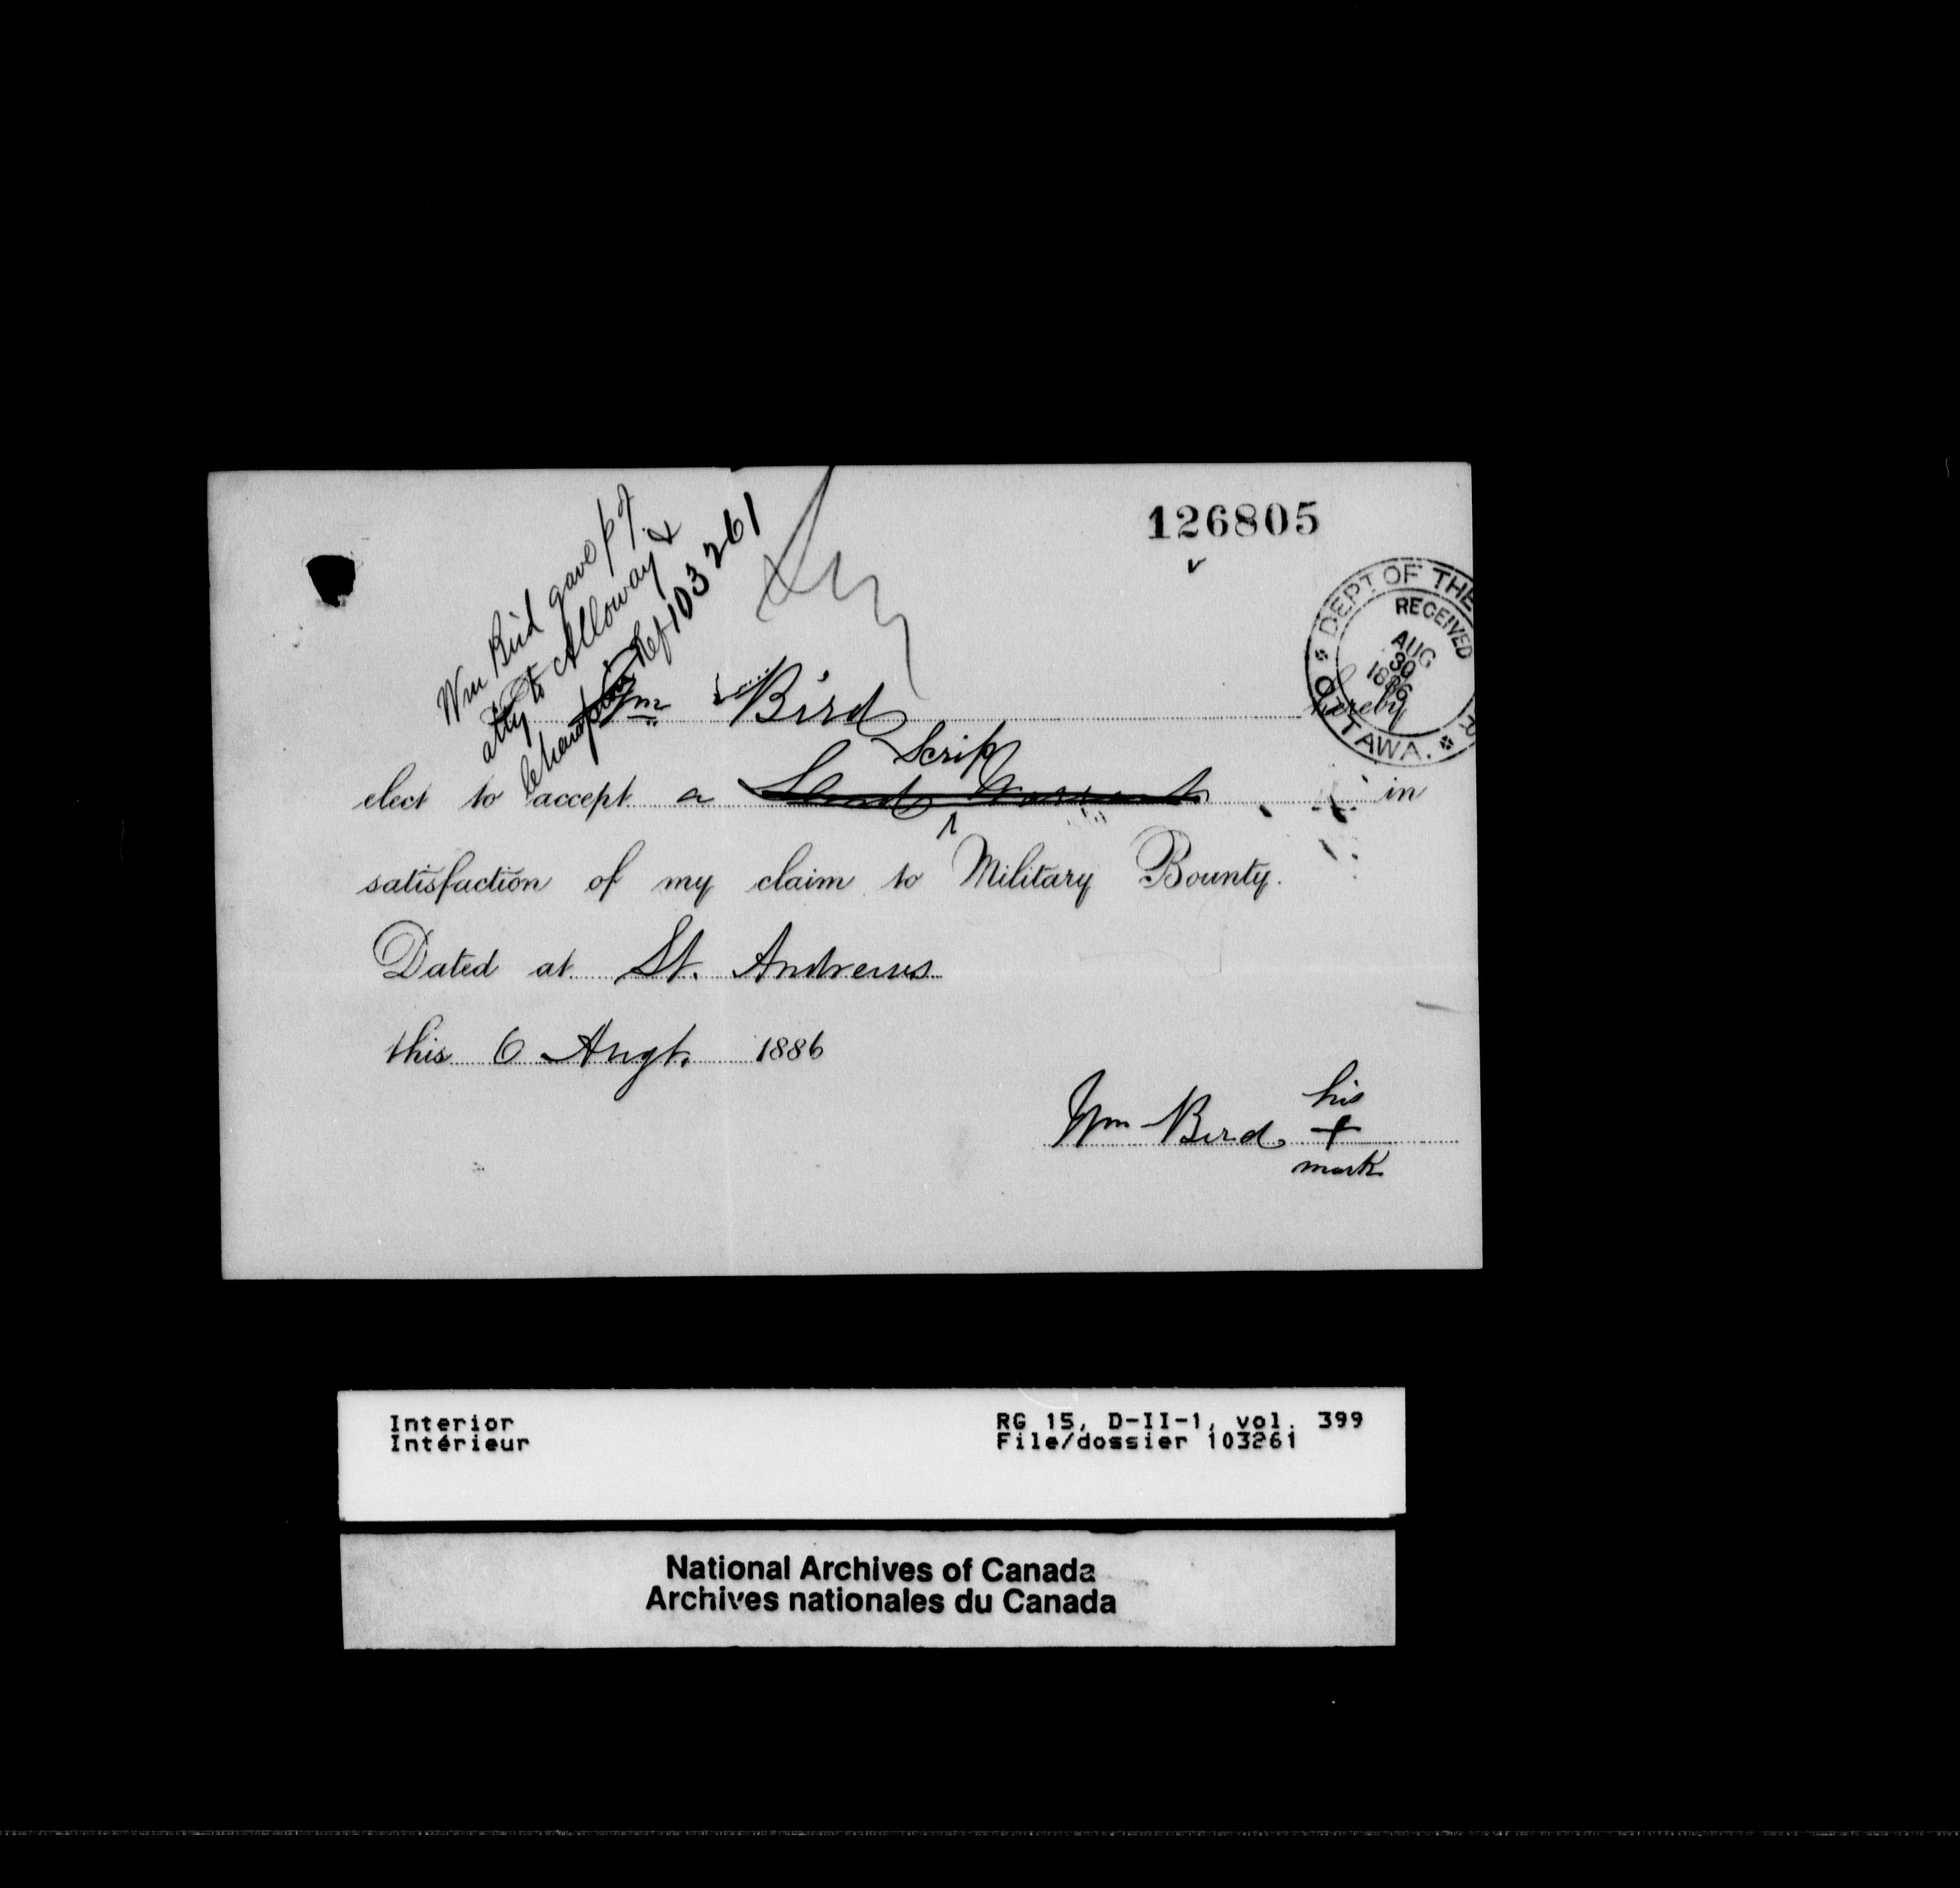 126805
Wm Bird gave p of
atty to Alloway &
Champion Ref 103 261
DEPT OF THE
RECEIVED
AUG
30
1886
OTTAWA.
Wm Bird hereby
Scrip
elect to accept a Land Warrant in
satisfaction of my claim to Military Bounty.
Dated at St. Andrews
this 6 Augt. 1886
his
Wm Bird +
mark
Interior RG 15, D-II-1, vol. 399
Intérieur File/dossier 103261
National Archives of Canada
Archives nationales du Canada